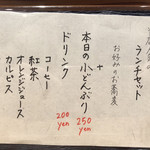 ランチセット
お好みのお蕎麦
+
本日の小どんぶり 250yen
ドリンク 200yen
コーヒー
紅茶
オレンジジュース
カルピス